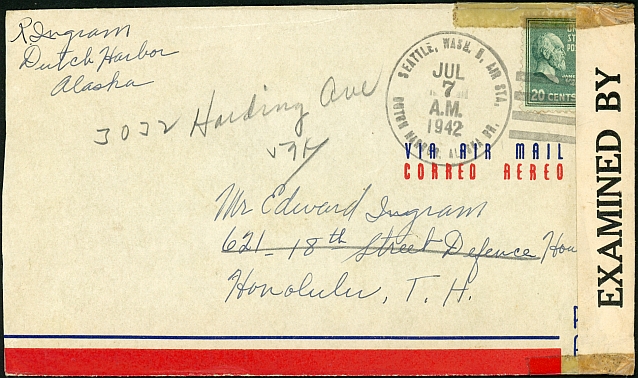 R Ingram
Dutch Harbor
Alaska
3032 Harding Ave
SEATTLE, WASH. N. AIR STA.
JUL
7
A.M.
1942
DUTCH HARBOR, ALASKA BR.
20 CENTS
VIA AIR MAIL
CORREO AEREO
Mr Edward Ingram
621 - 18th Street Defence Hou
Honolulu, T. H.
EXAMINED BY